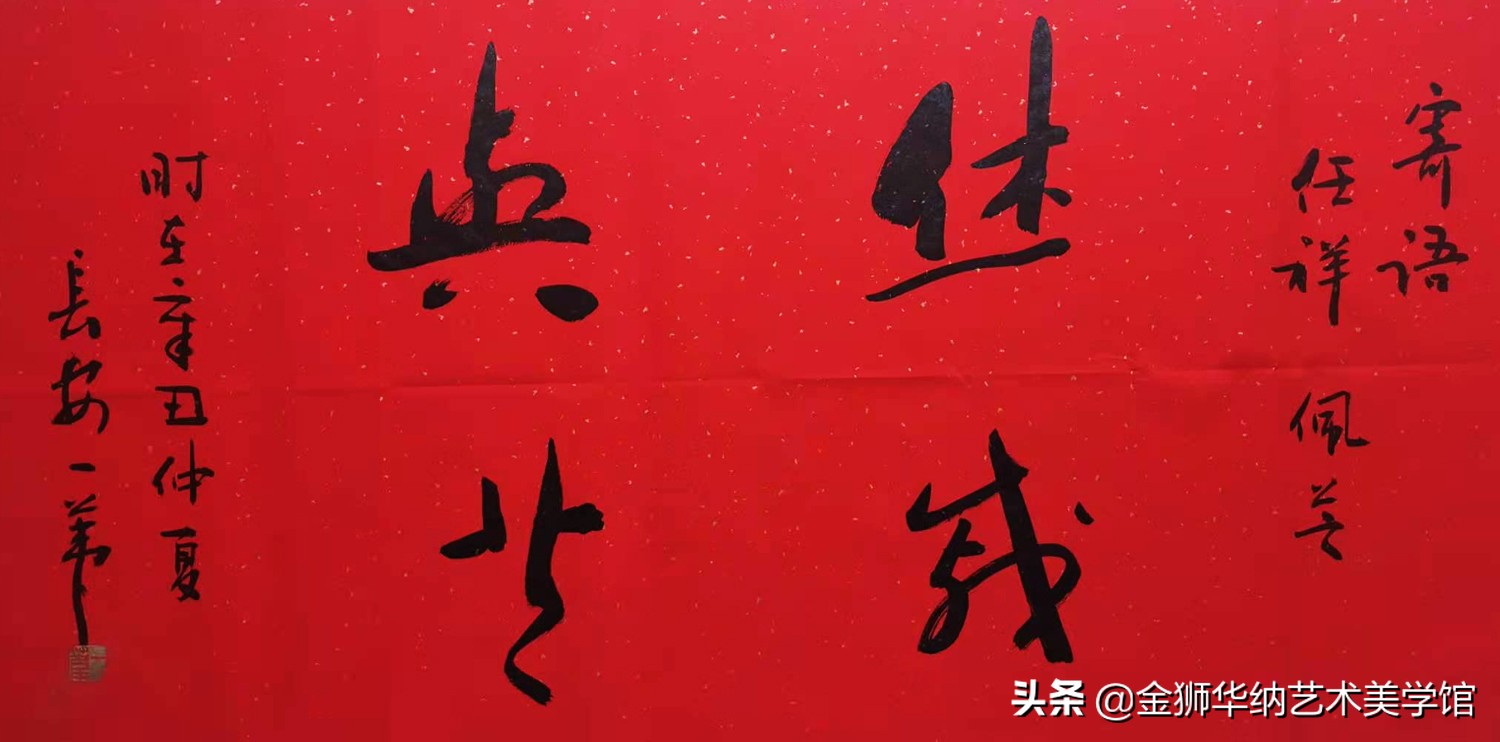 寄语
任祥 佩
休戚
與共
时在辛丑仲夏
長安一苇
头条 @金狮华纳艺术美学馆